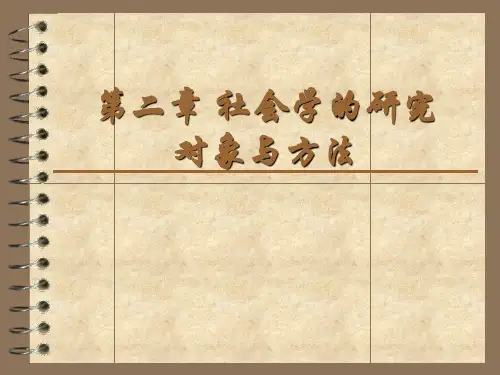 第二章 社会学的研究
对象与方法